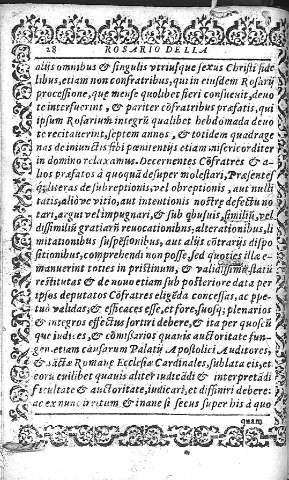 28 ROSARIO DELLA
alijs omnibus & singulis vtriusque sexus Christi fide
libus, etiam non confratribus, qui in eiusdem Rosarij
processione, quę mense quolibet fieri consueuit, deuo
te interfuerint, & pariter cõfratribus pręfatis, qui
ipsum Rosarium integrũ qualibet hebdomada deuo
te recitauerint, septem annos, & totidem quadrage
nas de iniunctis sibi pœnitentijs etiam misericorditer
in domino relaxamus. Decernentes Cõfratres & a-
lios pręfatos à quoquã desuper molestari, Pręsentes
q; literas de subreptionis, vel obreptionis, aut nulli
tatis, aliòve vitio, aut intentionis nostrę defectu no
tari, argui vel impugnari, & sub quibusuis, similiũ, vel
dissimiliũ gratiarũ reuocationibus, alterationibus, li
mitationibus suspẽsionibus, aut alijs cõtrarijs dispo
sitionibus, comprehendi non posse, sed quoties illæ e-
manuerint toties in pristinum, & validissimũ, statũ
restitutas & de nouo etiam sub posteriore data per
ipsos deputatos Cõfratres eligẽda concessas, ac ppe
tuò validas, & efficaces esse, et fore, suosq; plenarios
& integros effectus sortiri debere, & ita per quoscũ
que iudices, & cõmissarios quauis auctoritate fun-
gen. etiam causarum Palatij Apostolici Auditores,
& sãctæ Romanę Ecclesię Cardinales, sublata eis, et
eorũ cuilibet quauis aliter iudicãdi & interpretãdi
facultate & auctoritate, iudicari, et diffiniri debere:
ac ex nunc irritum & inane si secus super his à quo
quam